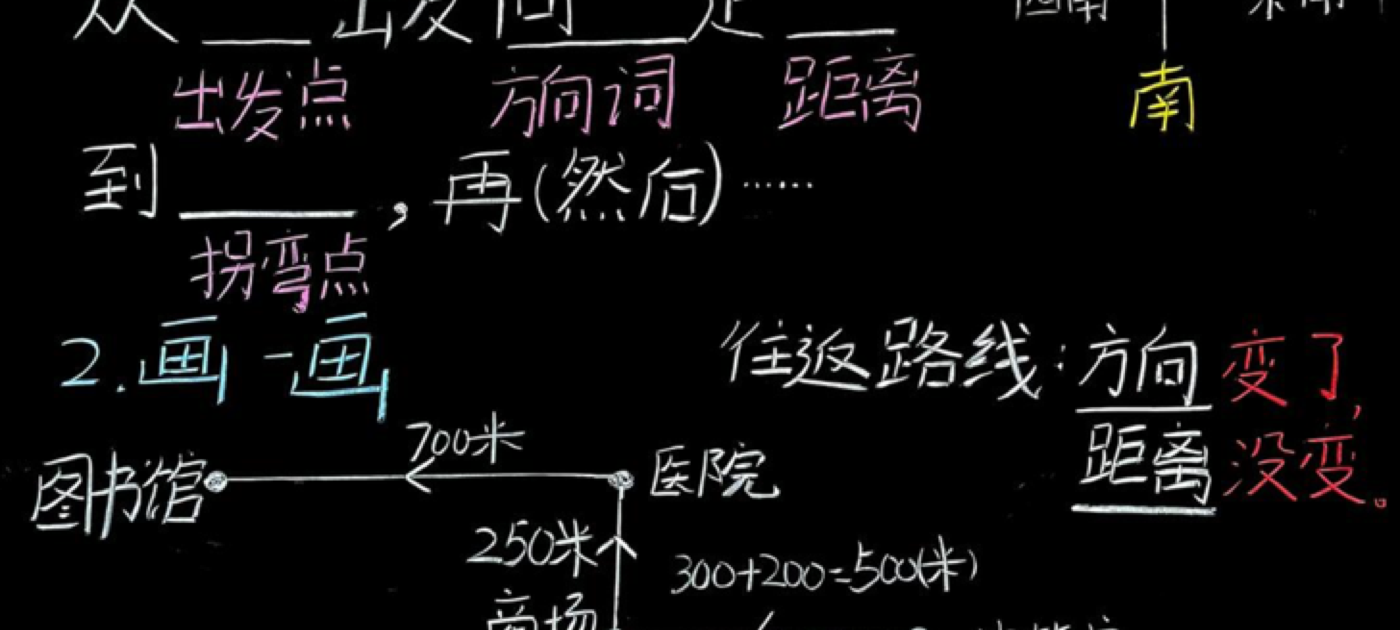 从___出发向___走___ 西南
出发点 方向词 距离 南
到___，再(然后)……
拐弯点
2.画一画
往返路线：方向变了，
距离没变。
700米
图书馆 医院
250米 300+200=500(米)
商场